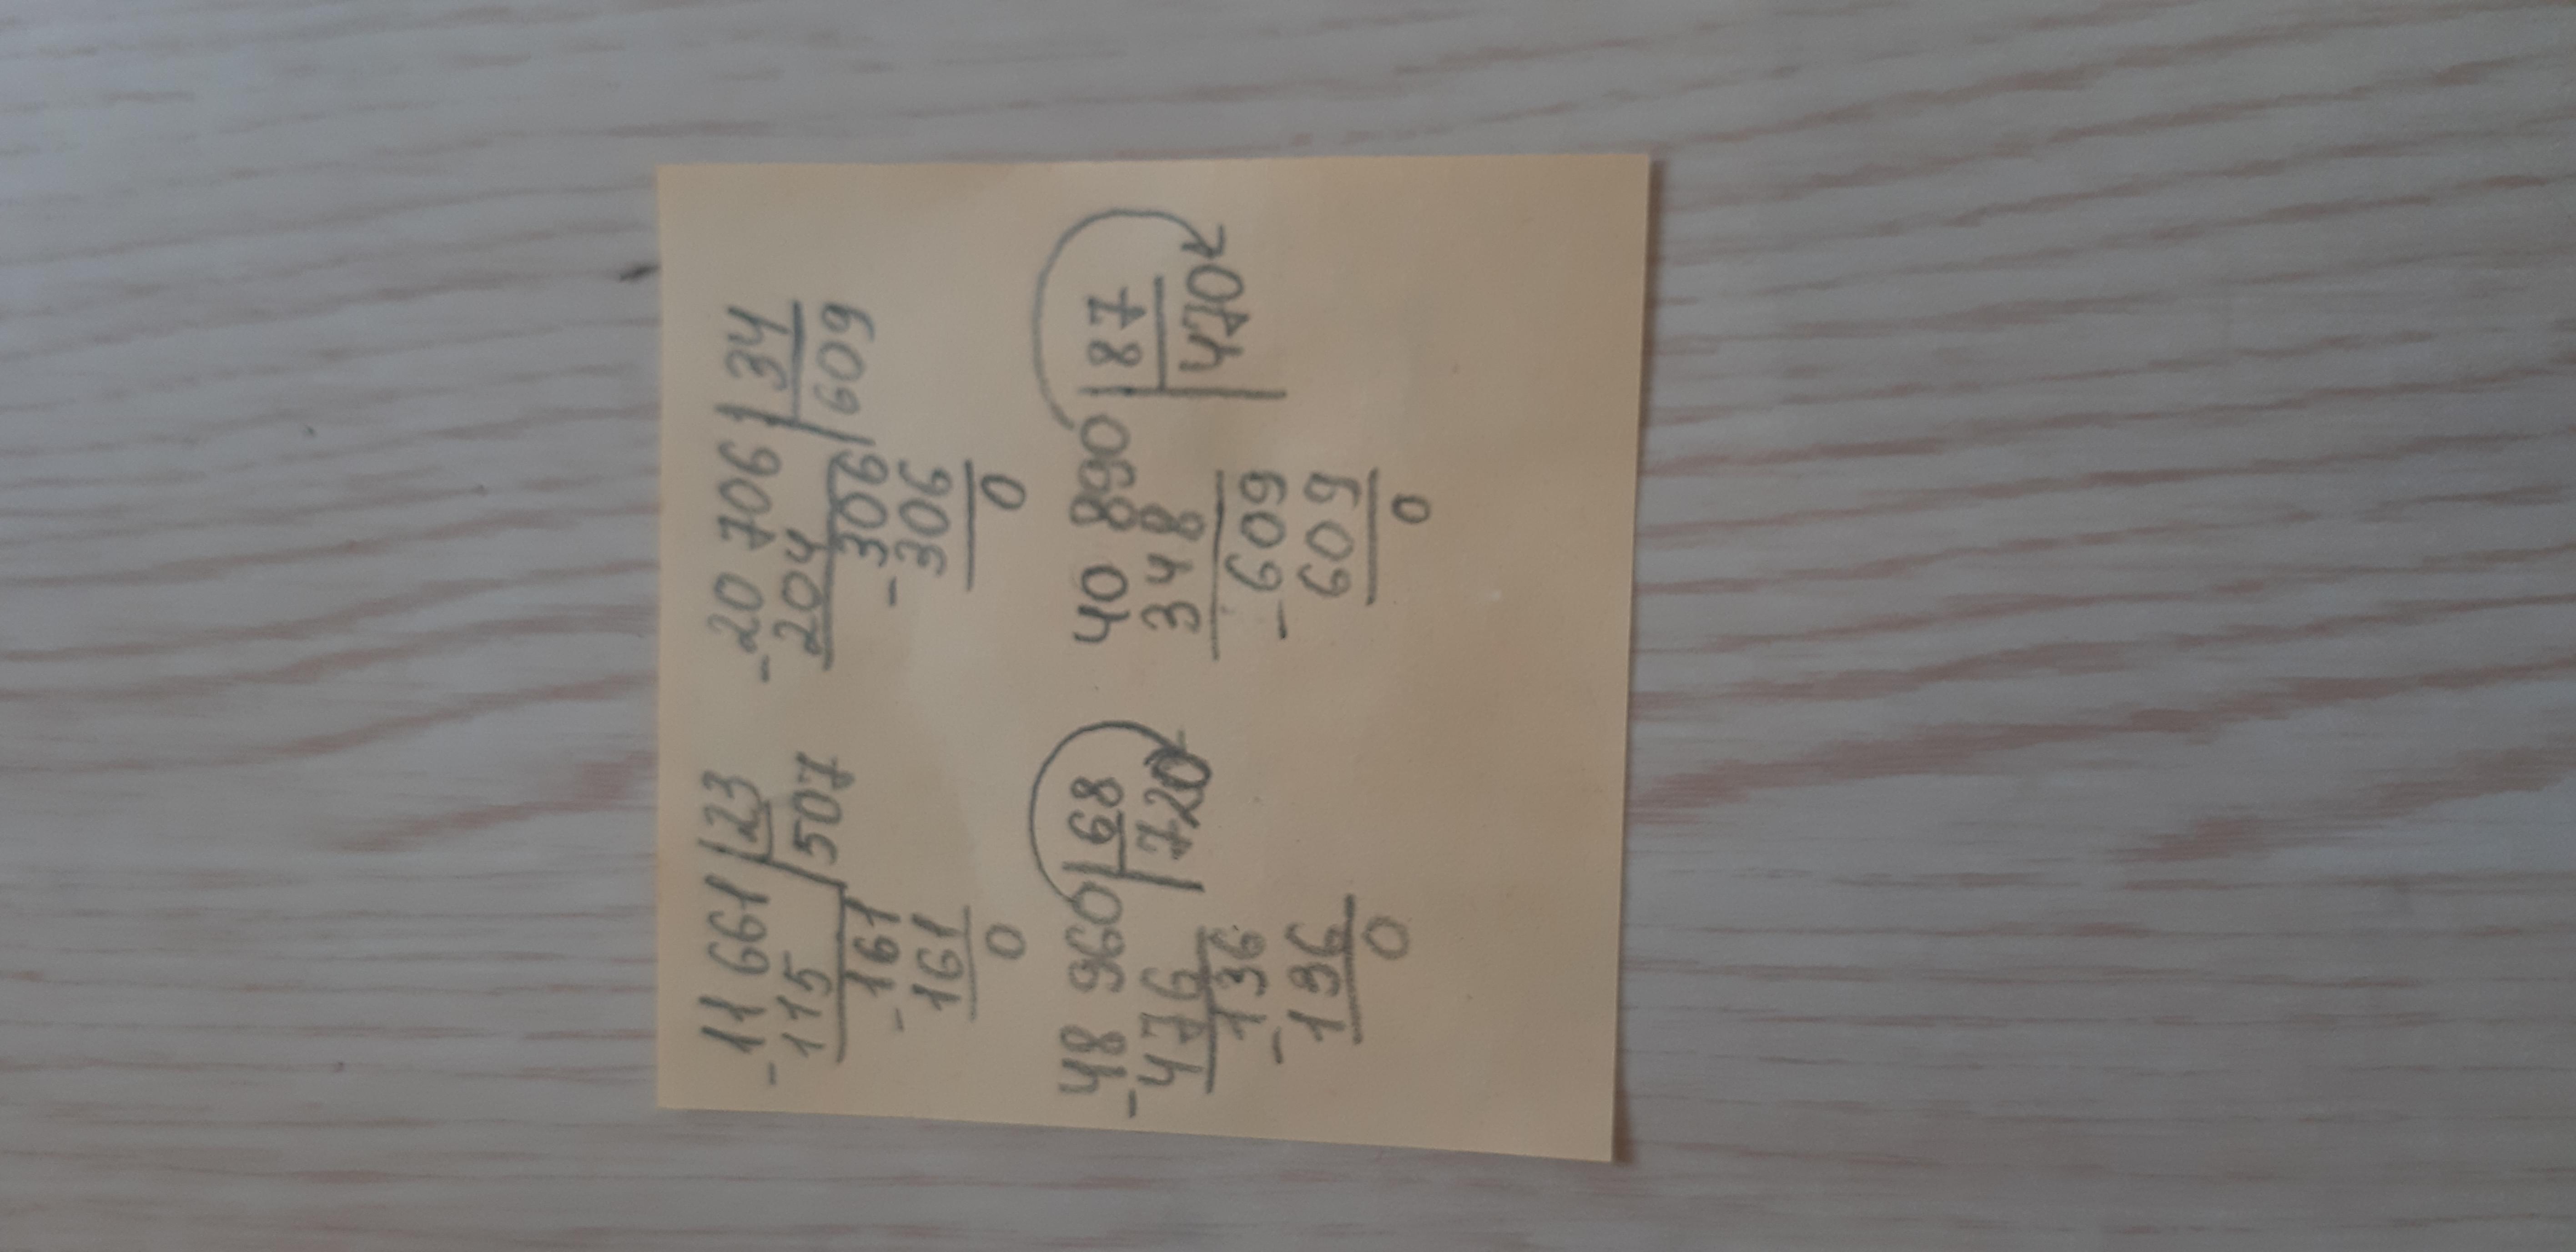 -11 661 | 23
115 | 507
-161
161
0
-20 706 | 34
204 | 609
-306
306
0
48 960 | 68
-476 | 720
136
-136
0
40 890 | 87
348 | 470
-609
609
0